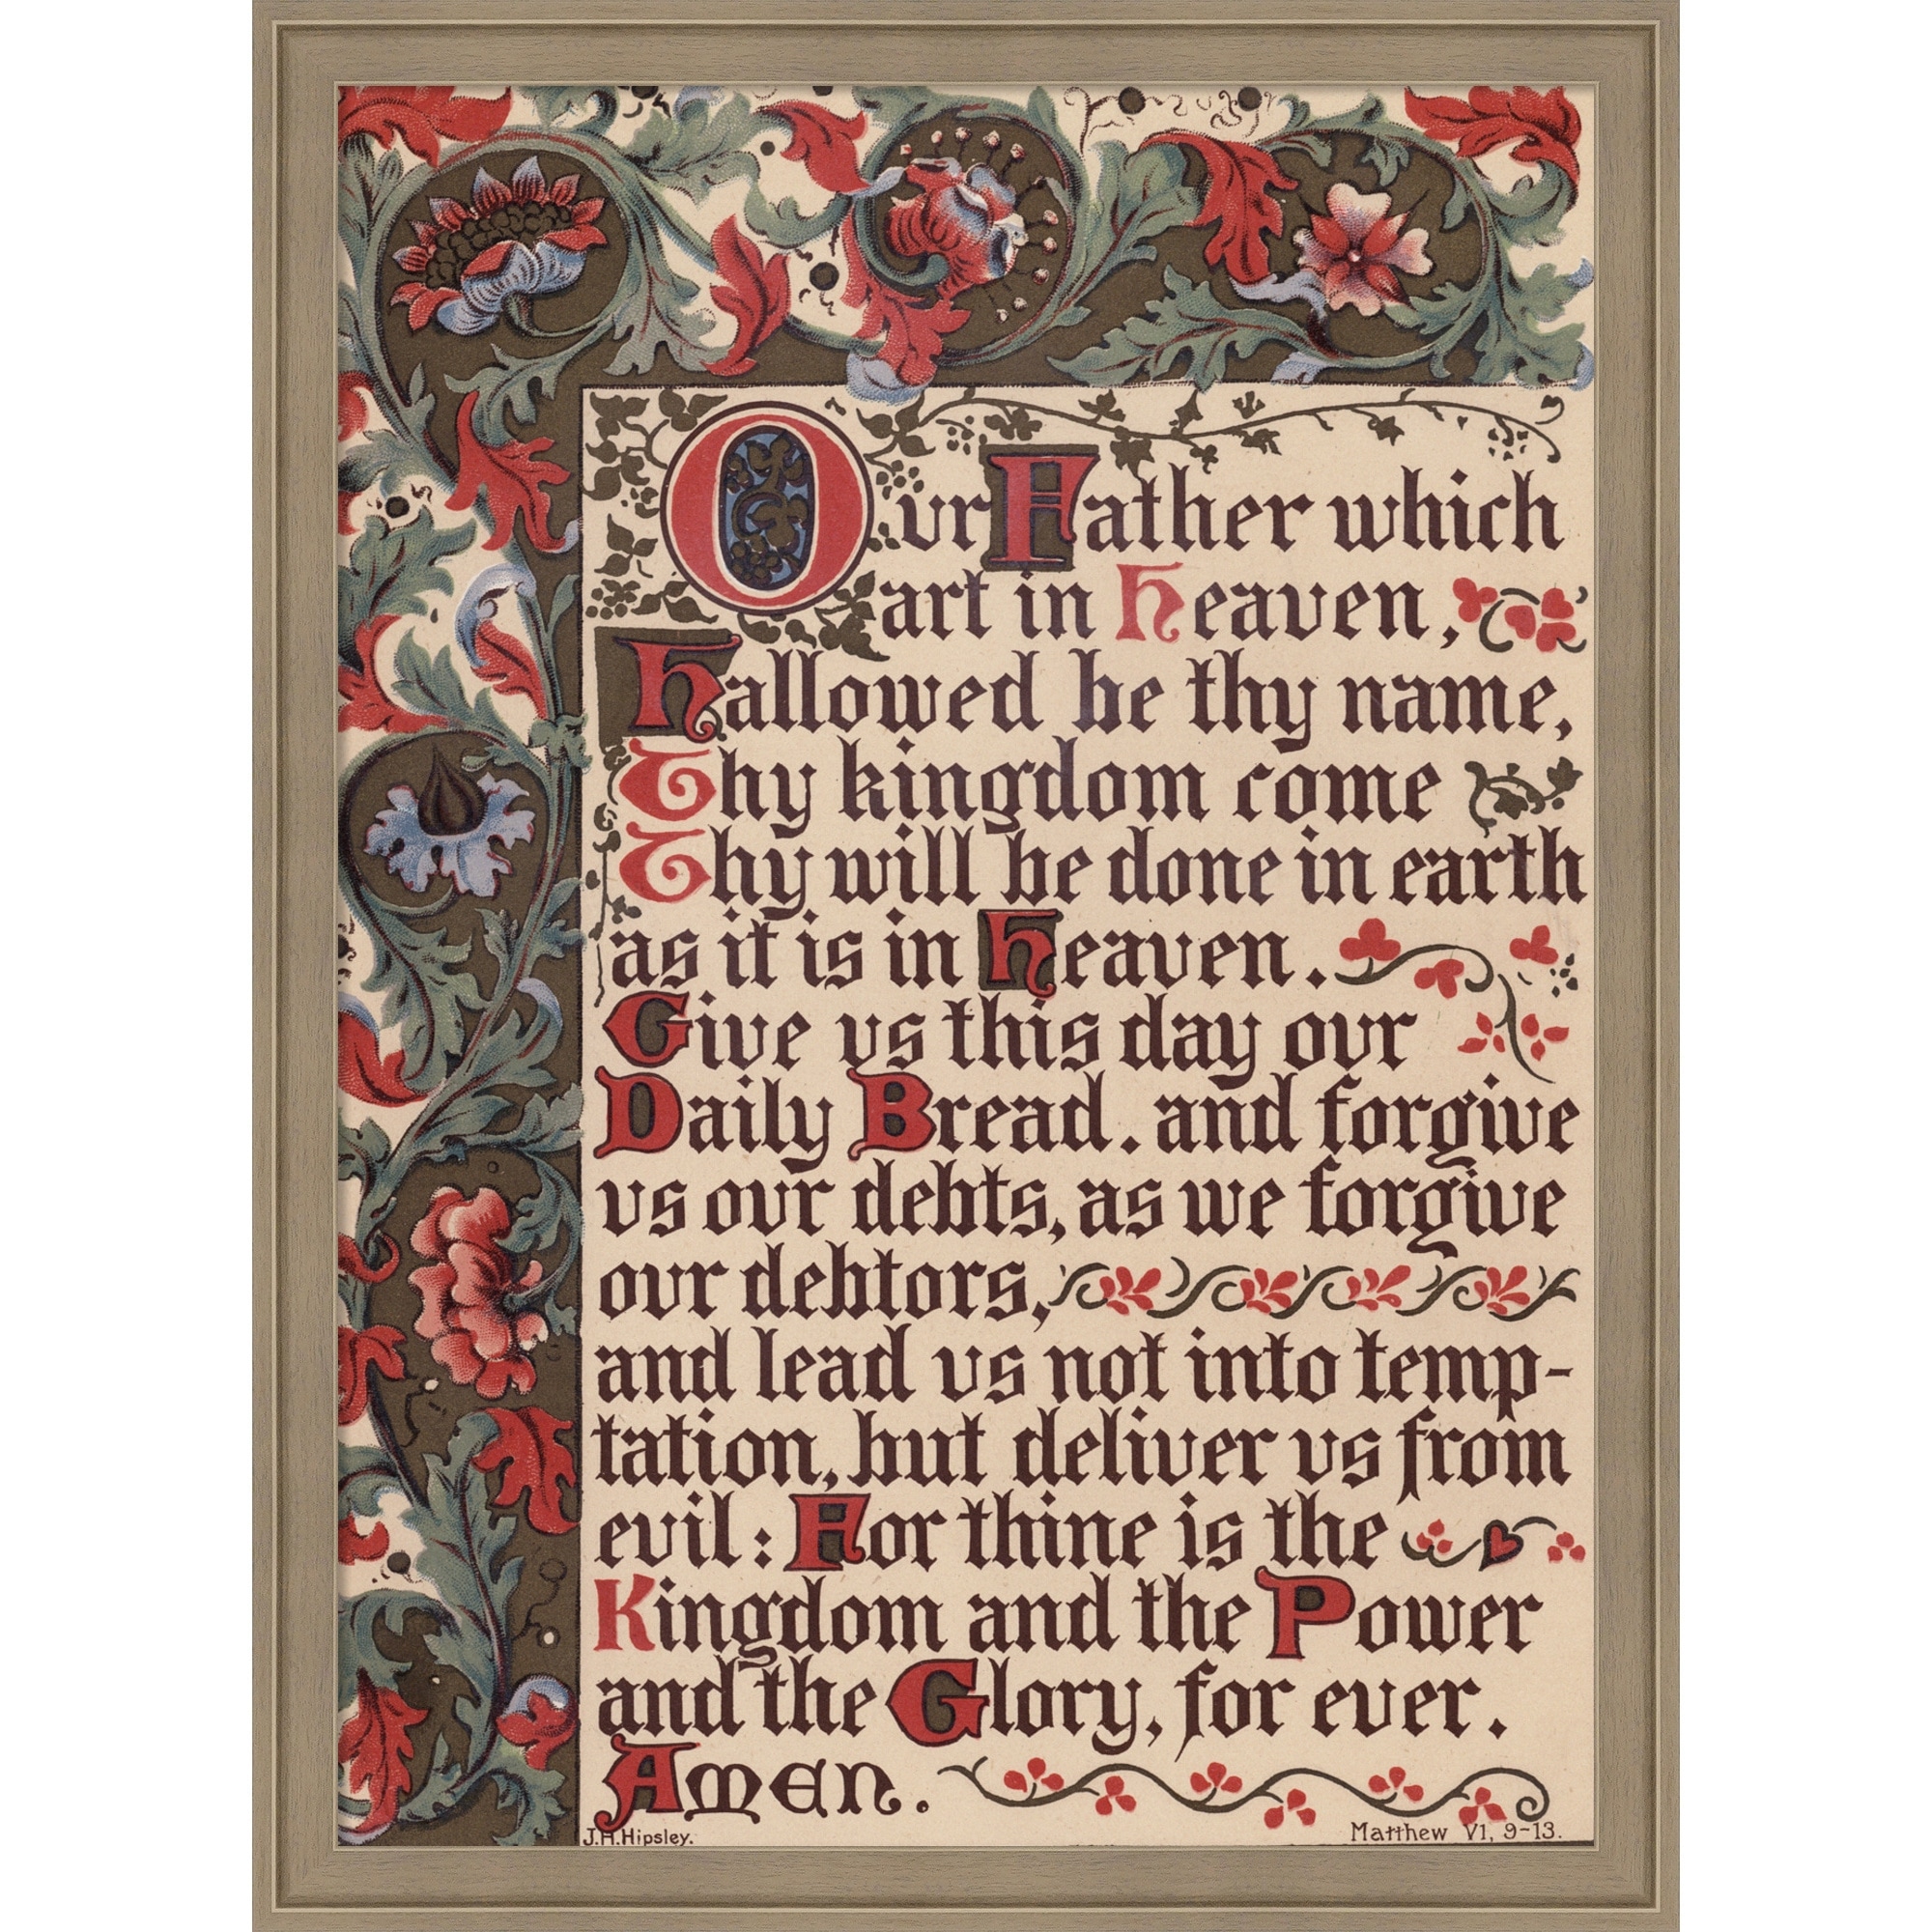 Ovr Father which
art in Heaven,
Hallowed be thy name,
Thy kingdom come
Thy will be done in earth
as it is in Heaven.
Give vs this day ovr
Daily Bread. and forgive
vs ovr debts, as we forgive
ovr debtors,
and lead vs not into temp-
tation, but deliver vs from
evil: For thine is the
Kingdom and the Power
and the Glory, for ever.
Amen.
J.H.Hipsley.
Matthew V1, 9-13.